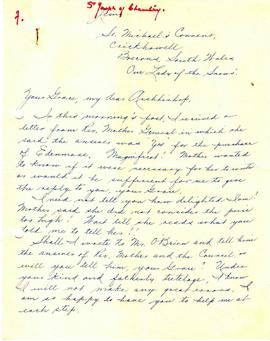 St Joseph of Chambery
St. Michael's Convent,
Crickhowell
Brecond, South Wales
Our Lady of the Snows.
Your Grace, my dear Archbishop,
In this morning's post, I received a
letter from Rev. Mother General in which she
said the answer was Yes for the purchase
of Edenmore, Magnifico! Mother wanted
to know if it were necessary for her to write
or would it be sufficient for me to give
the reply to you, your Grace.
I need not tell you how delighted I am!
Mother said she did not consider the price
too high! Wait till she reads what you
told me to tell her!!
Shall I write to Mr. O'Brien and tell him
the answer of Rev. Mother and the Council, or
will you tell him, your Grace? Under
your kind and fatherly tutelage, I know
I will not make any great errors. I
am so happy to have you to help me at
each step.